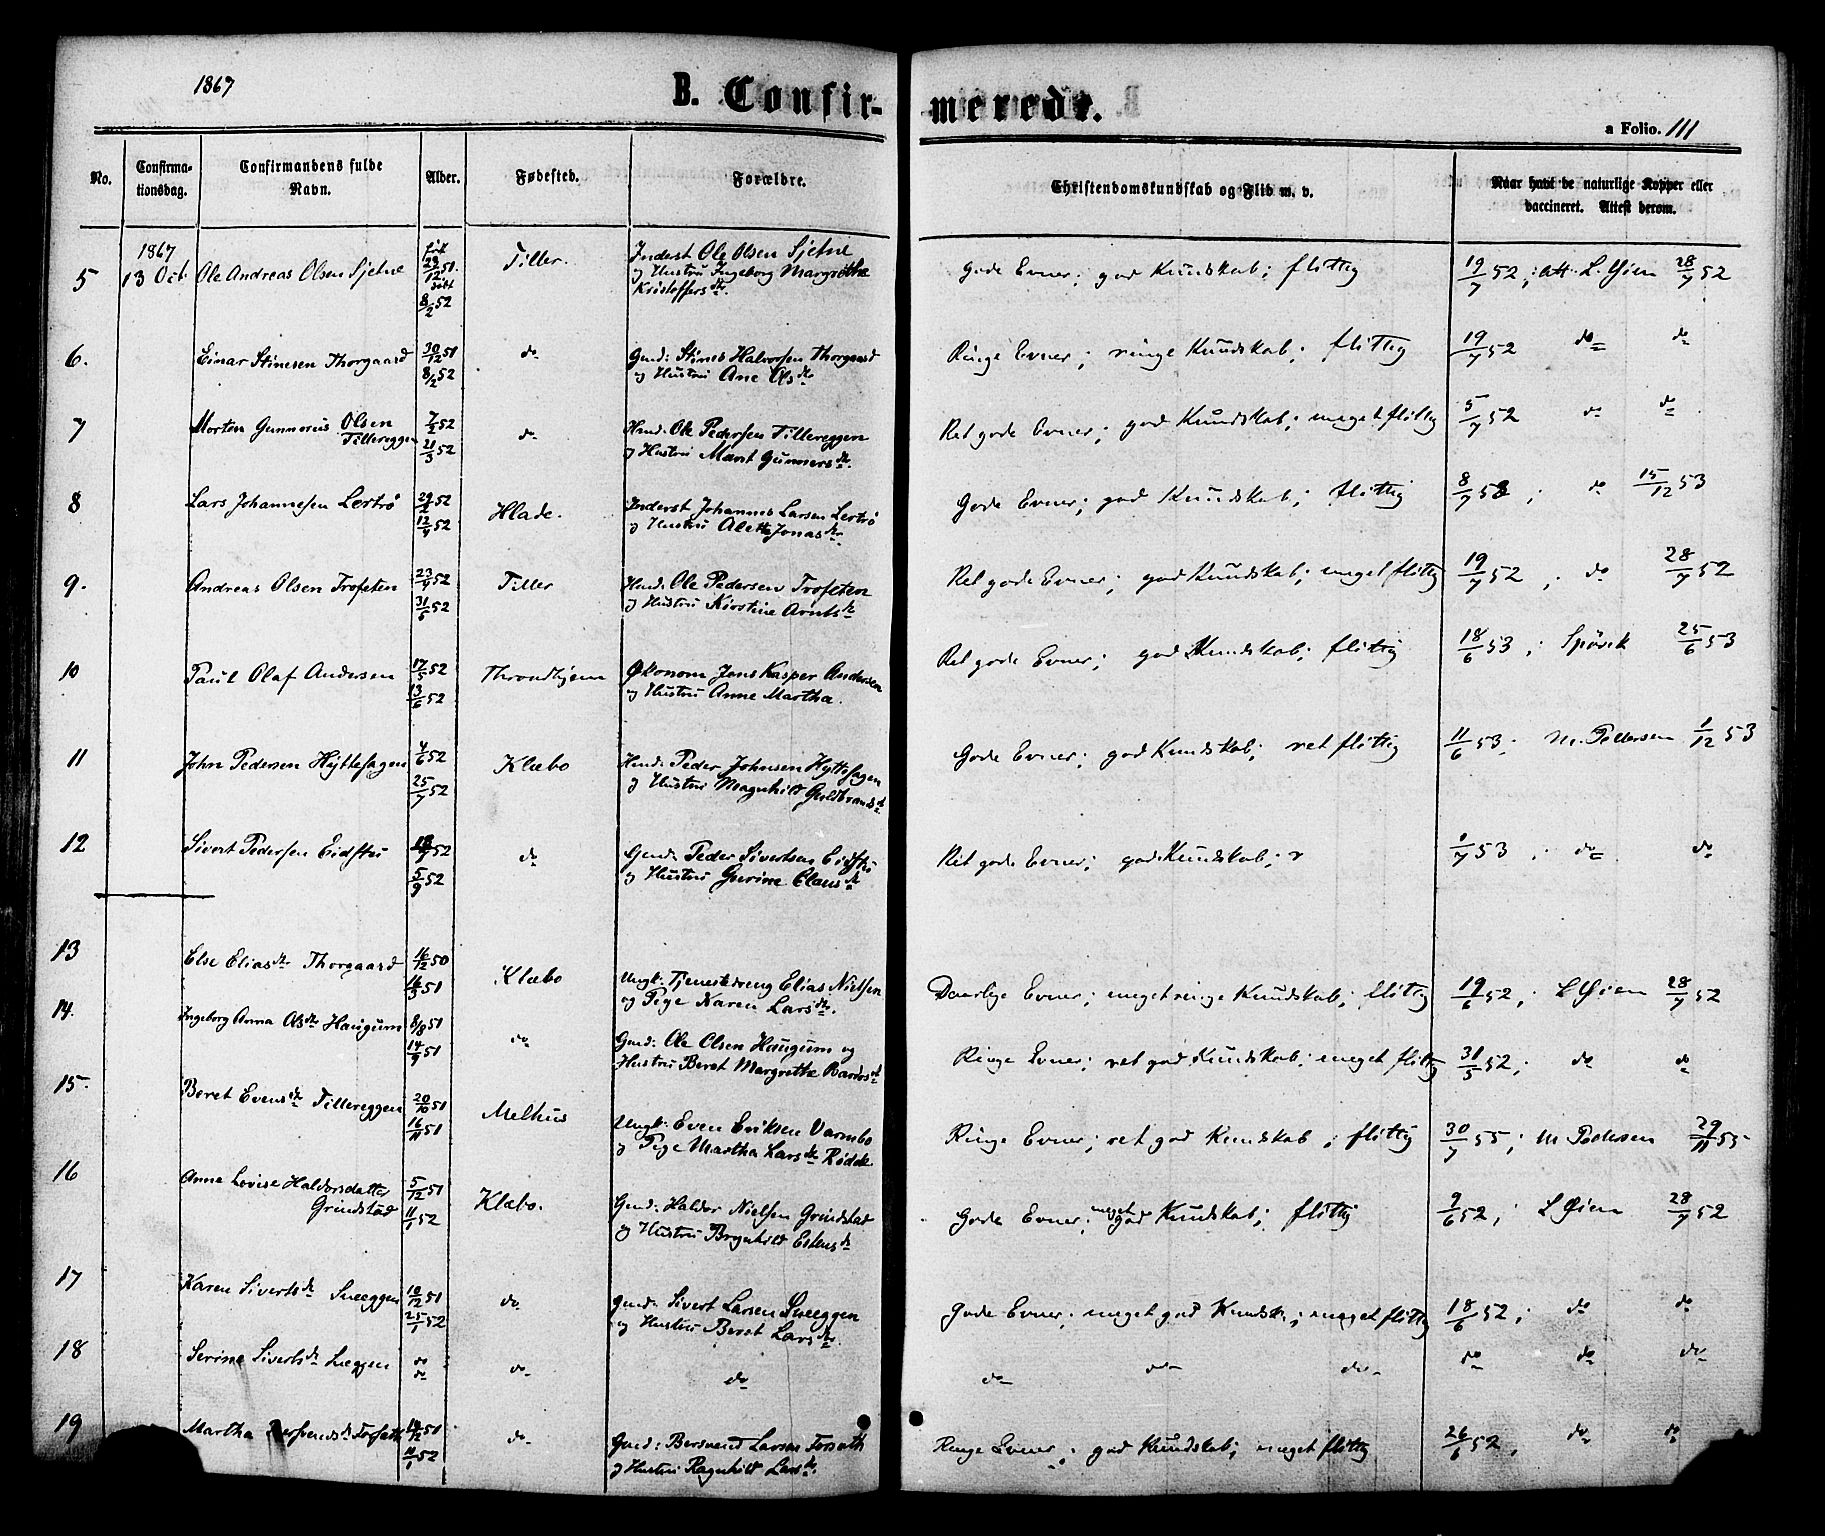 1867
B. Confir-
merede.
a Folio. 111
No.
Confirma-
tionsdag.
Confirmandens fulde
Navn.
Alder.
Fødested.
Forældre.
Christendomskundskab og Flid m. v.
Naar havt de naturlige Kopper eller
vaccineret. Attest derom.
1867
5 13 Oct. Ole Andreas Olsen Sjetne
født 29/12 51. døbt 8/2 52
Tiller.
Inderst Ole Olsen Sjetne
og Hustru Ingeborg Margrethe
Kristoffersdtr.
Gode Evner; god Kundskab; flittig
19/7 52; att. L. Øien 28/7 52
6. Einar Stinesen Thorgaard
30/12 51 8/2 52
do
Gmd: Stines Halvorsen Thorgaard
og Hustru Ane Olsdtr
Ringe Evner; ringe Kundskab; flittig
19/7 52 do do
7 Morten Gunnerius Olsen
Tillereggen
7/2 52 21/3 52
do
Hmd: Ole Pedersen Tillereggen
og Hustru Marit Gunnersdtr.
Ret gode Evner; god Kundskab; meget flittig
5/7 52 do do
8 Lars Johannesen Lertrø
29/2 52 12/4 52
Hlade.
Inderst Johannes Larsen Lertrø
og Hustru Alette Jonasdtr.
Gode Evner; god Kundskab; flittig
8/7 53; do 15/12 53
9. Andreas Olsen Trofeten
23/4 52 31/5 52
Tiller
Hmd: Ole Pedersen Trofeten
og Hustru Kirstine Arntsdtr
Ret gode Evner; god Kundskab; meget flittig
19/7 52; do 28/7 52
10 Paul Olaf Andersen
17/5 52 13/6 52
Throndhjem
Økonom Jens Kasper Andersen
og Hustru Anne Martha.
Ret gode Evner; god Kundskab; flittig
18/6 53; Spörck 25/6 53
11 John Pedersen Hyttefagen
4/6 52 25/7 52
Klæbo
Hmd: Peder Johnsen Hyttefagen
og Hustru Magnhild Guldbrandsdtr
Gode Evner; god Kundskab; ret flittig
11/6 53; M. Pedersen 1/12 53
12 Sivert Pedersen Eidstu
18/7 52 5/9 52
do
Gmd: Peder Sivertsen Eidstu
og Hustru Gurine Clausdtr
Ret gode Evner; god Kundskab;
1/7 53; do do
13 Else Eliasdtr Thorgaard
16/12 50 16/3 51
Klæbo
Ungk: Tjenestedreng Elias Nielsen
og Pige Karen Larsdtr.
Daarlige Evner; meget ringe Kundskab; flittig
19/6 52; L Øien 28/7 52
14. Ingeborg Anna Olsdtr Haugum
8/8 51 14/9 51
do
Gmd: Ole Olsen Haugum og
Hustru Beret Margrethe Bardosdtr
Ringe Evner; ret god Kundskab; meget flittig
31/5 52; do do
15. Beret Evensdtr Tillereggen
20/10 51 16/11 51
Melhus
Ungk: Even Eriksen Varmbo
og Pige Martha Larsdtr Rødde
Ringe Evner; ret god Kundskab; flittig
30/7 55; M Pedersen 29/11 55
16 Anne Lovise Haldorsdatter
Grindstad
5/12 51 11/1 52
Klæbo.
Gmd: Haldor Nielsen Grindstad
og Hustru Brynhild Estensdtr
Gode Evner; meget god Kundskab; flittig
9/6 52; L Øien 28/7 52
17 Karen Sivertsdtr Sneeggen
10/12 51 25/1 52
do
Gmd: Sivert Larsen Sneeggen
og Hustru Beret Larsdtr.
Gode Evner; meget god Kundsk.; meget flittig
18/6 52; do do
18 Serine Sivertsdtr
do do
do
do
do do do
do do do
19 Martha Bersvendsdtr Forseth
10/12 51 11/1 52
do
Gmd: Bersvend Larsen Forseth
og Hustru Ragnhild Larsdtr.
Ringe Evner; god Kundskab; meget flittig
26/6 52, do do